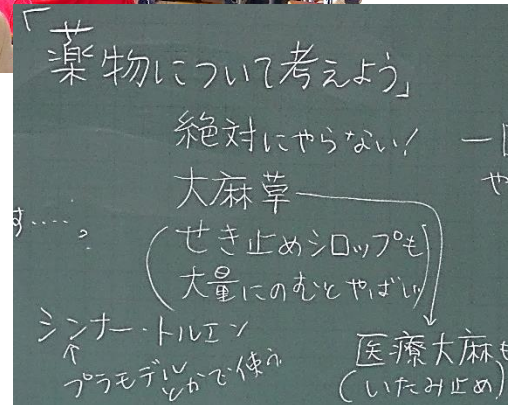 「薬物について考えよう」
絶対にやらない! 一
大麻草
や
す‥‥。
(せき止めシロップも
大量にのむとやばい)
シンナー・トルエン
↑
プラモデルとかで使う
医療大麻も
(いたみ止め)